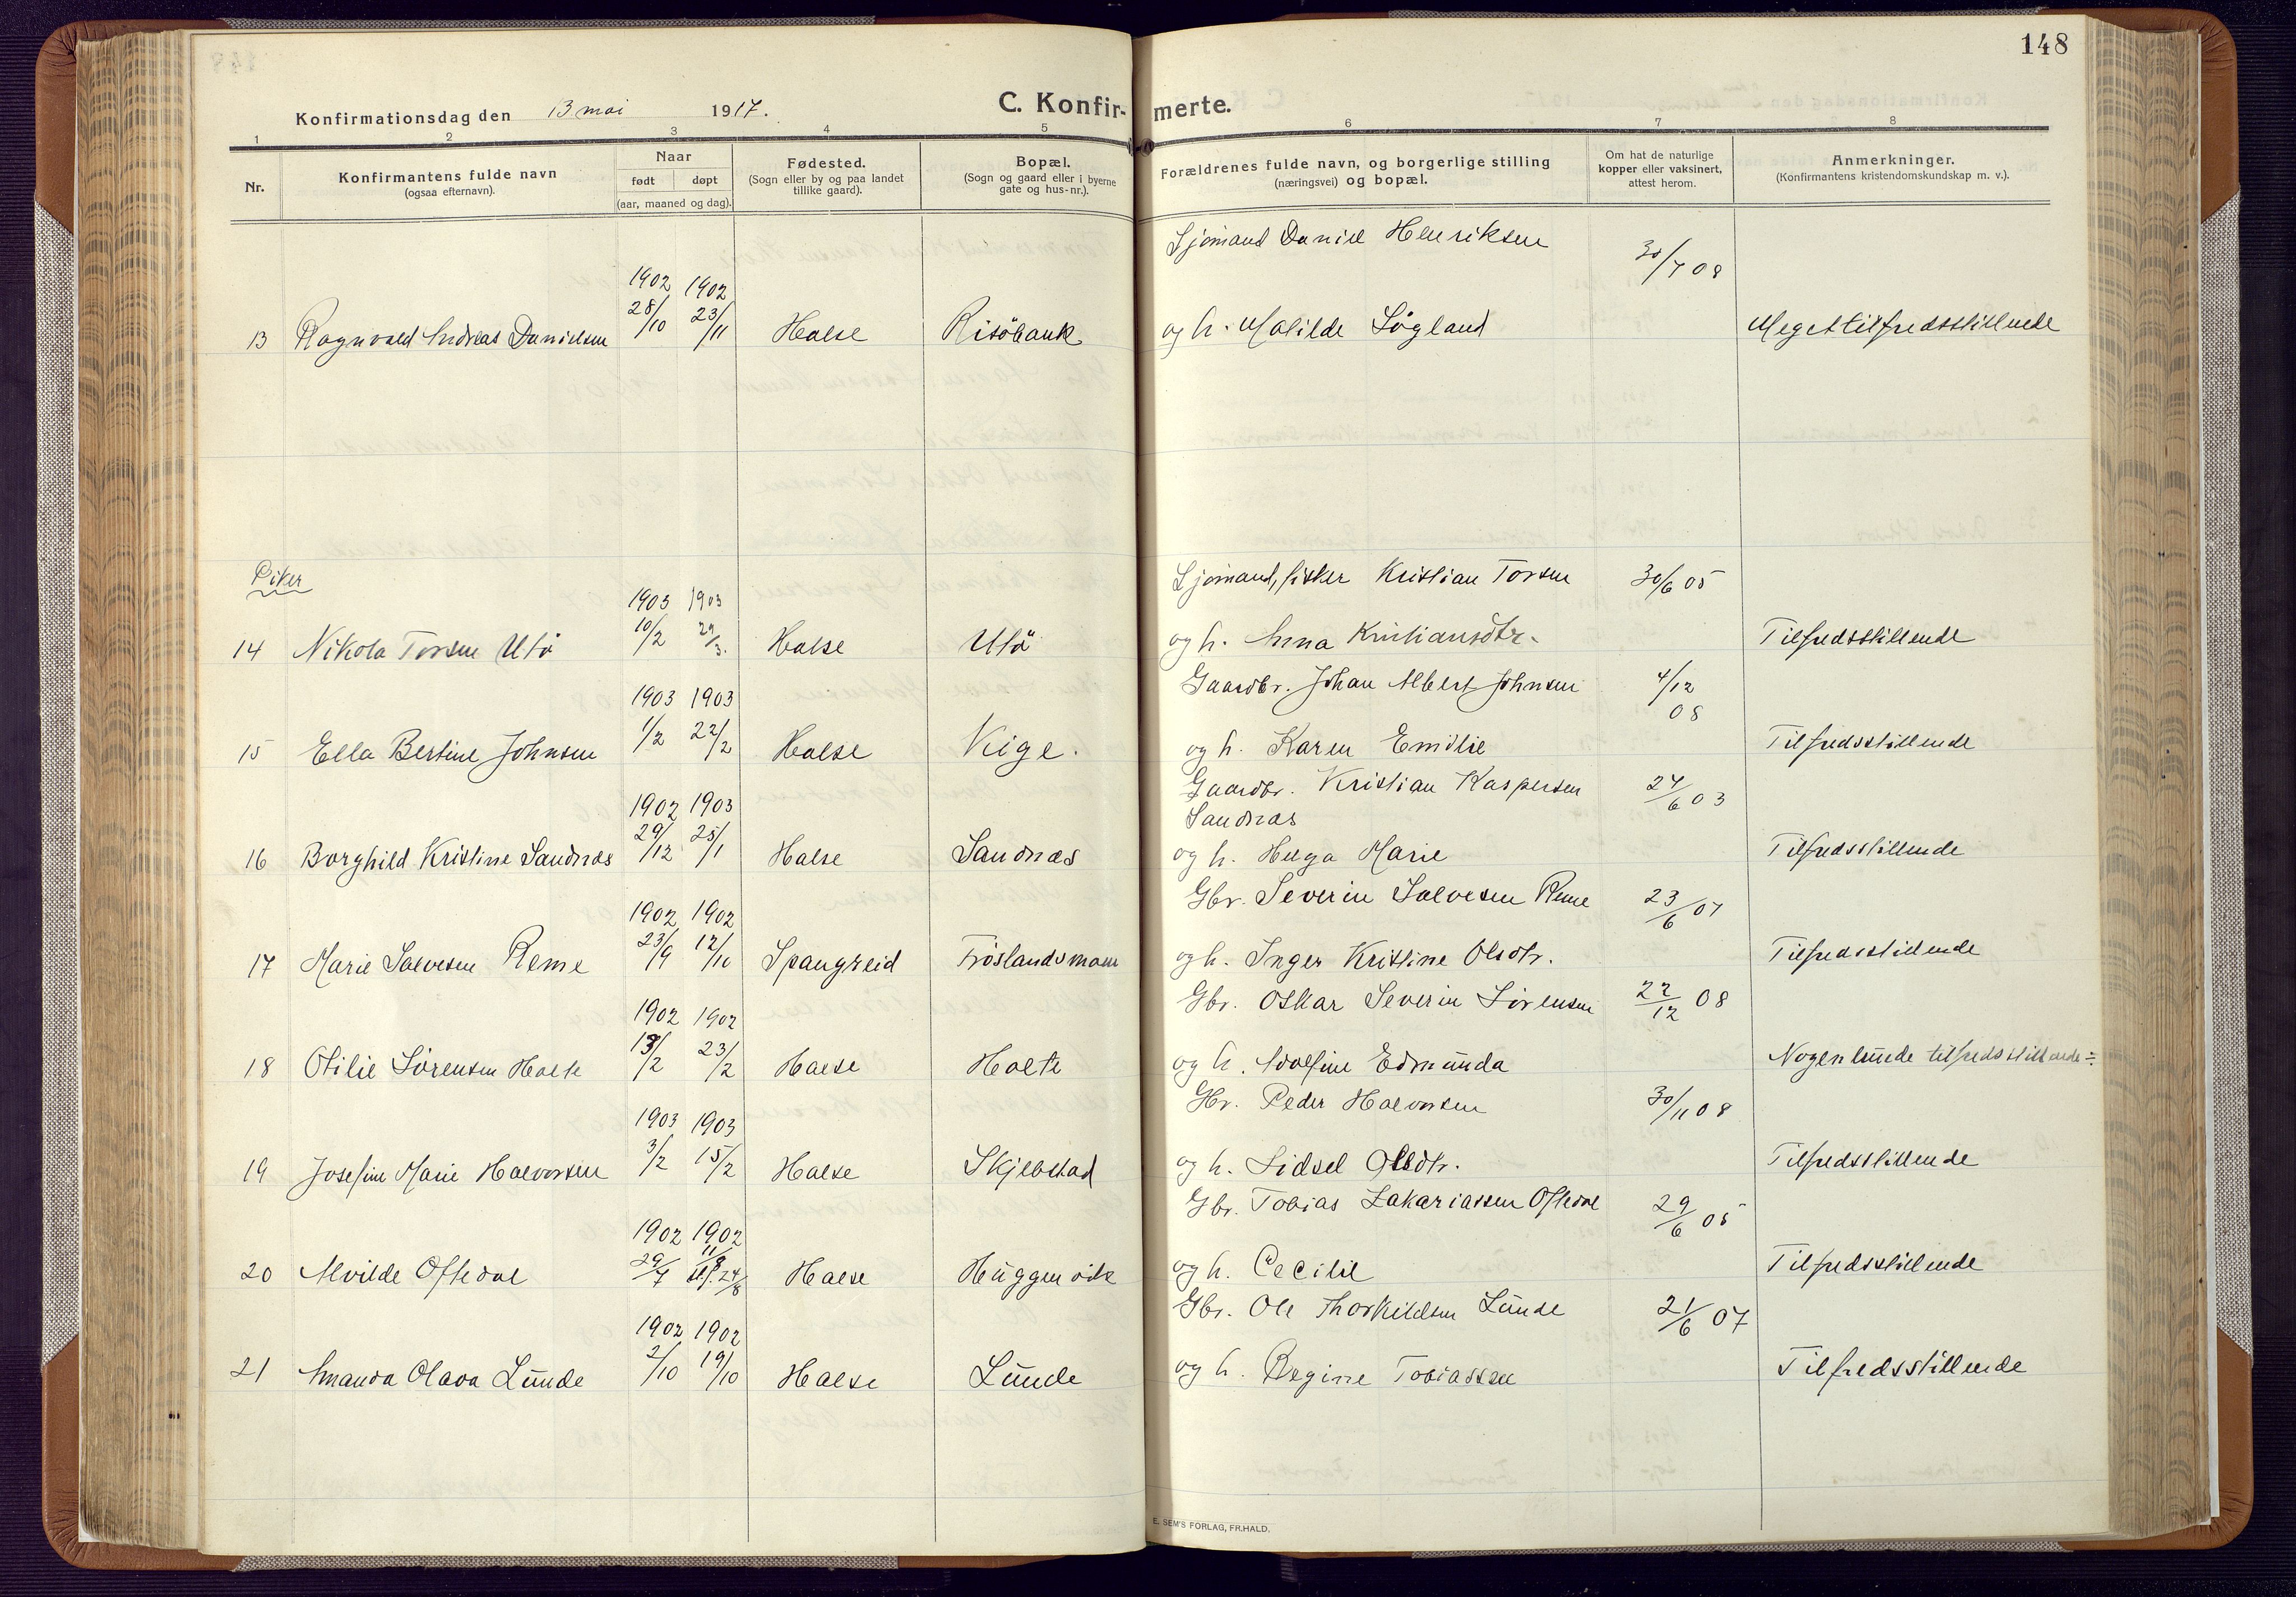 148
Konfirmationsdag den 13 mai 1917.
C. Konfir-
merte.
1 2 3 4 5 6 7 8
Nr.
Konfirmantens fulde navn
(ogsaa efternavn).
Naar
født døpt
(aar, maaned og dag).
Fødested.
(Sogn eller by og paa landet
tillike gaard).
Bopæl.
(Sogn og gaard eller i byerne
gate og hus-nr.).
Forældrenes fulde navn, og borgerlige stilling
(næringsvei) og bopæl.
Om hat de naturlige
kopper eller vaksinert,
attest herom.
Anmerkninger.
(Konfirmantens kristendomskundskap m. v.).
Sjømand Daniel Henriksen 30/7 08
1902 1902
13 Ragnvald Andreas Danielsen 28/10 23/11 Halse Risöbank og h. Malilde Lögland Meget tilfredsstillende
Piker
Sjømand, fisker Kristian Torsen 30/6 05
1903 1903
14 Nikola Torsen Utö 10/2 29/3. Halse Utö og h. Anna Kristiansdtr. Tilfredsstillende
1903 1903 Gaardbr. Johan Albert Johnsen 4/12 08
15 Ella Bertine Johnsen 1/2 22/2 Halse Kige. og h. Karen Emilie Tilfredsstillende
1902 1903 Gaardbr. Kristian Kaspersen 24/6 03
Sandnæs
16 Borghild Kristine Sandnæs 29/12 25/1 Halse Sandnæs og h. Helga Marie Tilfredsstillende
1902 1902 Gbr. Severin Salvesen Reme 23/6 07
17 Marie Salvesen Reme 23/9 12/10 Spangreid Fröslandsmoen og h. Inger Kristine Olsdtr. Tilfredsstillende
1902 1902 Gbr. Oskar Severin Sörensen 22/12 08
18 Otilie Sörensen Holte 13/2 23/2 Halse Holte og h. Adolfine Edmunda Nogenlunde tilfredsstillende ÷
1903 1903 Gbr. Peder Halvorsen 30/11 08
19 Josefine Marie Halvorsen 3/2 15/2 Halse Skjebstad og h. Sidsel Olsdtr. Tilfredsstillende
1902 1902 Gbr. Tobias Zakariassen Oftedal 29/6 05
20 Alvilde Oftedal 29/7 11/8 st. f. 24/8 Halse Huggenvik og h. Cecilie Tilfredsstillende
1902 1902 Gbr. Ole Thorkildsen Lunde 21/6 07
21 Amanda Olava Lunde 2/10 19/10 Halse Lunde og h. Regine Tobiassen Tilfredsstillende
E. SEM'S FORLAG, FR.HALD.